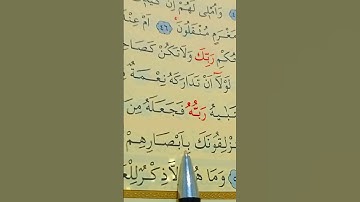 وَاُمْلٖى لَهُمْ اِنَّ كَيْدٖى
مَغْرَمٍ مُثْقَلُونَۚ ﴿٤٦﴾ اَمْ عِنْدَ
رَبِّكَ وَلَا تَكُنْ كَصَاحِ
لَوْلَٓا اَنْ تَدَارَكَهُ نِعْمَةٌ
رَبُّهُ فَجَعَلَهُ مِنَ
لَيُزْلِقُونَكَ بِاَبْصَارِهِمْ
وَمَا هُوَ اِلَّا ذِكْرٌ لِلْعَا